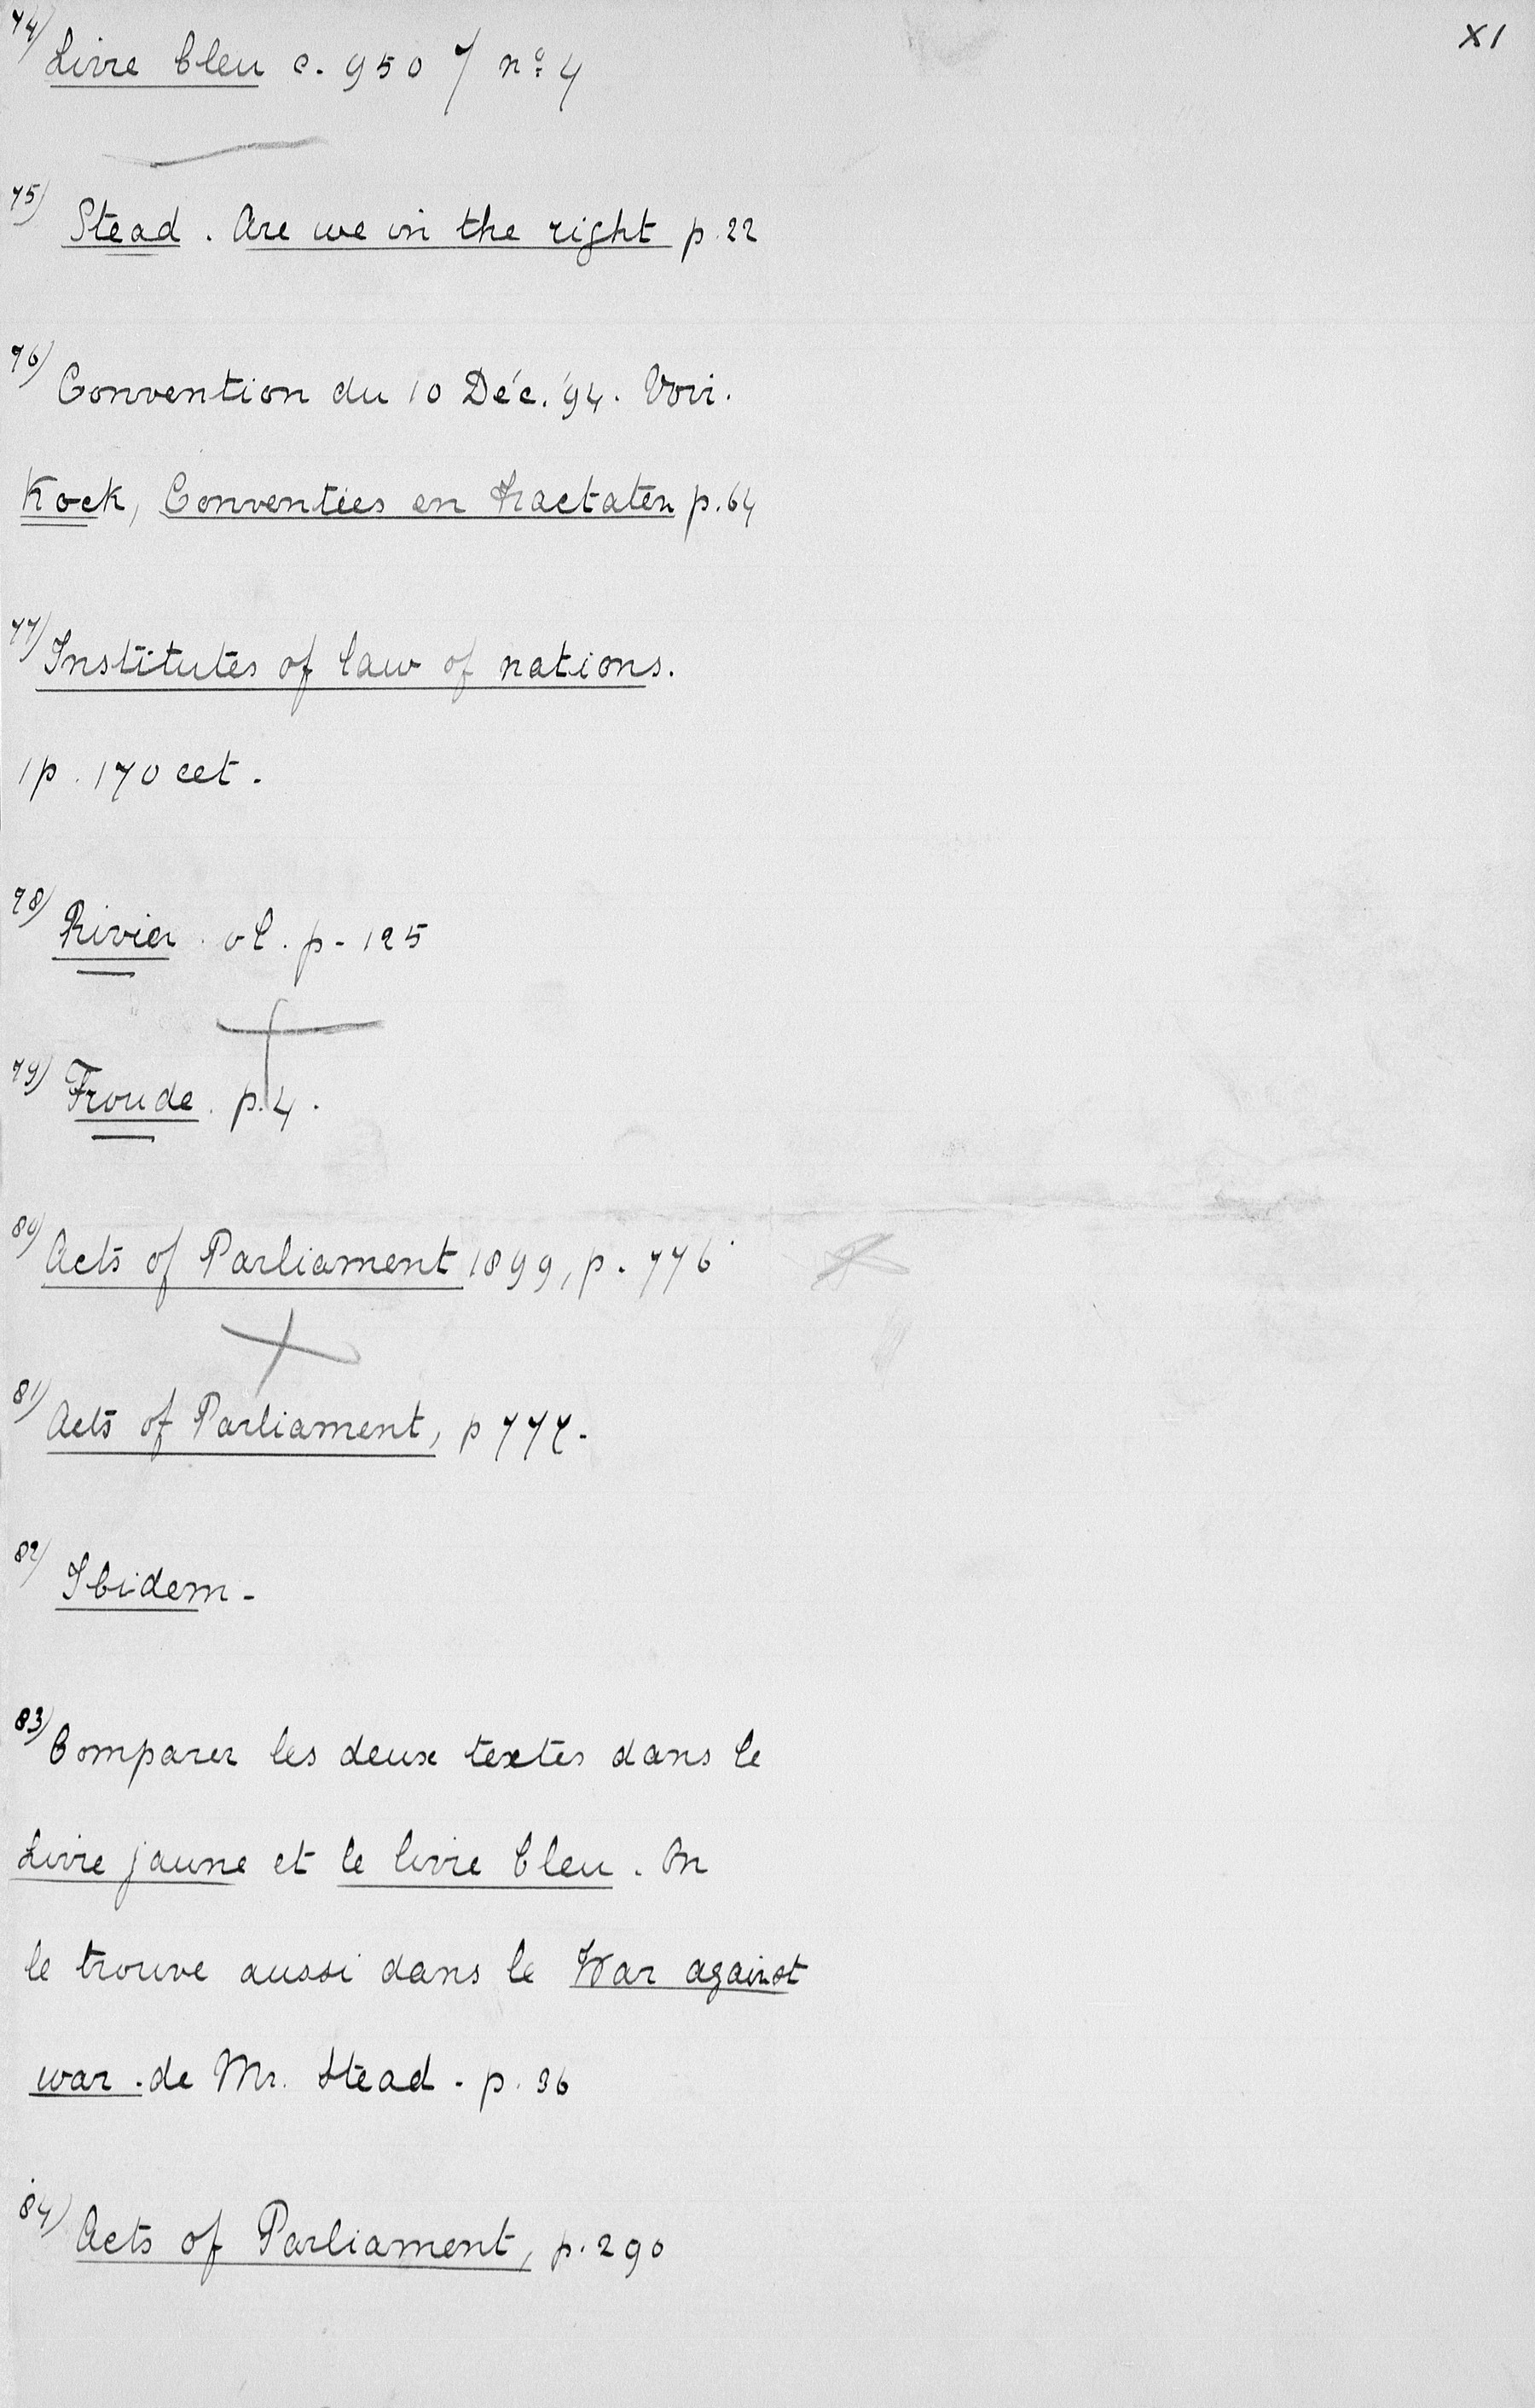 XI
74) Livre bleu c. 9507 nº 4
75) Stead. Are we in the right p. 22
76) Convention du 10 Déc. '94. Voir.
Kock, Conventies en Tractaten p. 64
77) Institutes of law of nations.
1 p. 170 cet.
78) Rivier. ol. p. 125
79) Froude. p. 4.
80) Acts of Parliament 1899, p. 776
81) Acts of Parliament, p 777.
82) Ibidem.
83) Comparer les deux textes dans le
Livre jaune et le livre bleu. On
le trouve aussi dans le War against
war. de Mr. Stead. p. 36
84) Acts of Parliament, p. 290